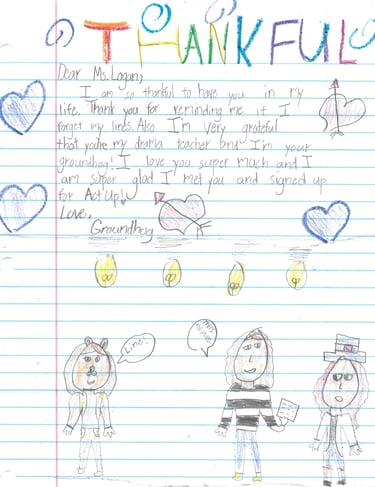 THANKFUL
Dear Ms. Logan,
I am so thankful to have you in my
life. Thank you for reminding me if I
forget my lines. Also I'm very grateful
that you're my drama teacher and I'm your
groundhog! I love you super much and I
am super glad I met you and signed up
for Act Up!
Love,
Groundhog
Line!